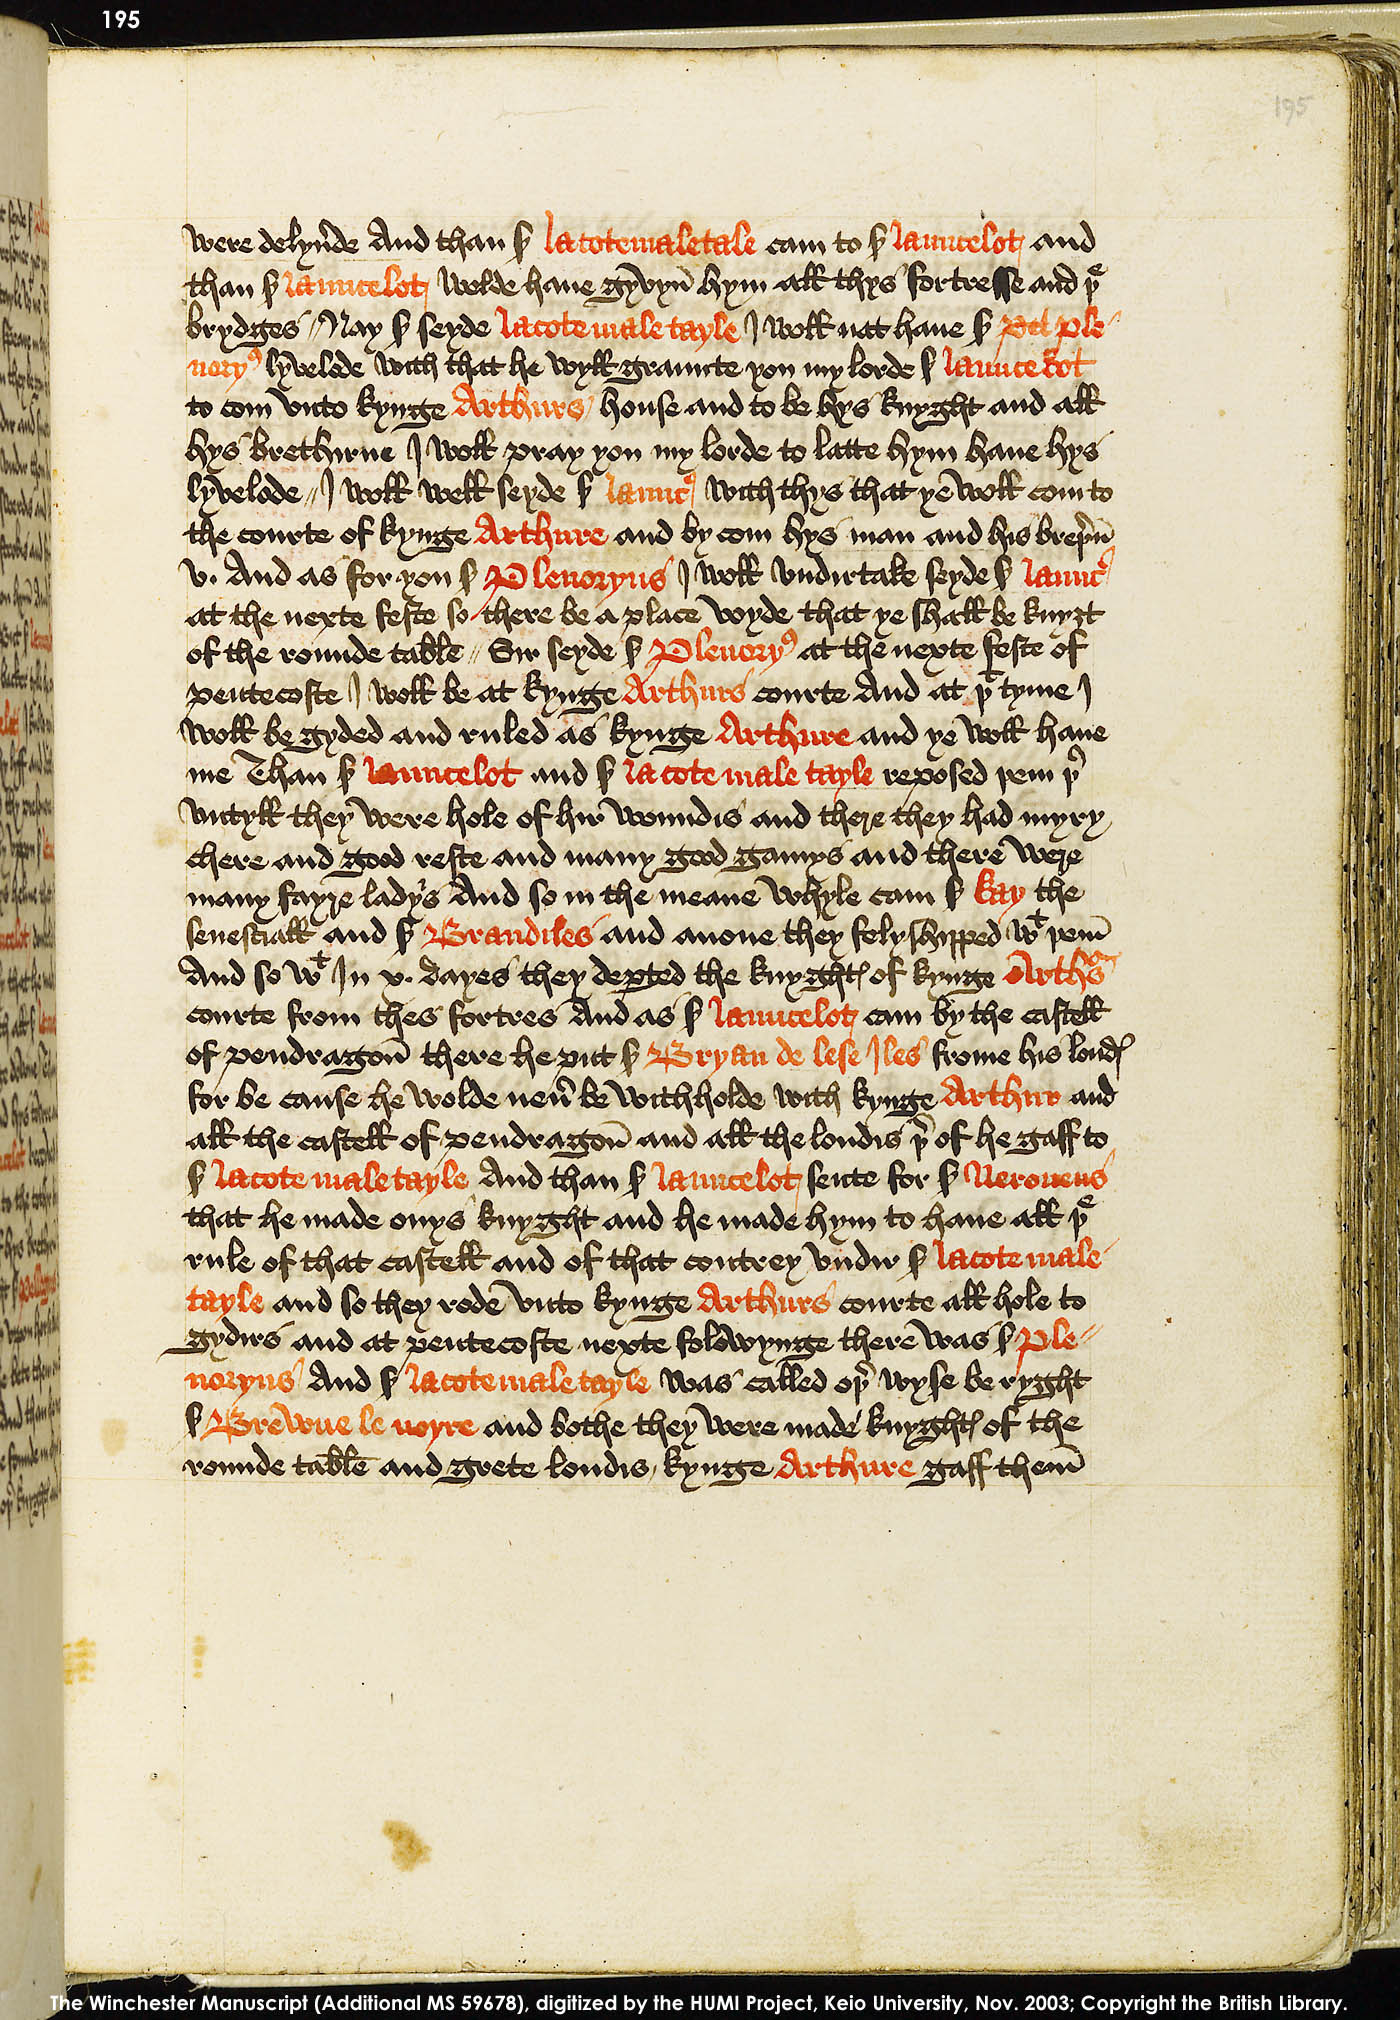 195
195
were delyu'de And than ẜ la cote male tale cam to ẜ launcelot and
than ẜ launcelot wolde haue gyvyn̄ hym all thys fortresse and þe
brydges // Nay ẜ seyde la cote male tayle I woll nat haue ẜ Ple
noryꝰ lyvelode with that he wyll graunte you my lorde ẜ launcelot
to com vnto kynge Arthurs house and to be hys knyght and all
hys brethirne I woll pray you my lorde to latte hym haue hys
lyvelode // I woll well seyde ẜ launcꝰ with thys that ye woll com to
the courte of kynge Arthure and by com hys man and his breþ'n̄
v. And as for you ẜ Plenoryus I woll vndirtake seyde ẜ launcꝰ
at the nexte feste so there be a place voyde that ye shall be knyȝt
of the rounde table // Sir seyde ẜ Plenoryꝰ at the nexte feste of
pentecoste I woll be at kynge Arthurs courte And at þt tyme I
woll be gyded and ruled as kynge Arthure and ye woll haue
me Than ẜ launcelot and ẜ la cote male tayle reposed þem þ'
vntyll they were hole of hir woundis and there they had myry
chere and good reste and many good gamys and there were
many fayre ladys And so in the meane whyle cam ẜ kay the
senesciall and ẜ Brandiles and anone they felyshipped wt þem̄
And so wt In x. dayes they dep̱ted the knyghtꝭ of kynge Arthurs
courte from thes fortres And as ẜ launcelot cam by the castell
of pendragon̄ there he put ẜ Bryan de lese Iles frome his londꝭ
for be cause he wolde neu' be with holde with kynge Arthur and
all the castell of pendragon̄ and all the londis þ' of he gaff to
ẜ la cote male tayle And than ẜ launcelot sente for ẜ Neroueus
that he made onys knyght and he made hym to haue all þe
rule of that castell and of that contrey vndir ẜ la cote male
tayle and so they rode vnto kynge Arthurs courte all hole to
gydirs and at pentecoste nexte folowynge there was ẜ Ple
noryus And ẜ la cote male tayle was called oþ' wyse be ryght
ẜ Brewne le noyre and bothe they were made knyghtꝭ of the
rounde table and grete londis kynge Arthure gaff them̄
The Winchester Manuscript (Additional MS 59678), digitized by the HUMI Project, Keio University, Nov. 2003; Copyright the British Library.